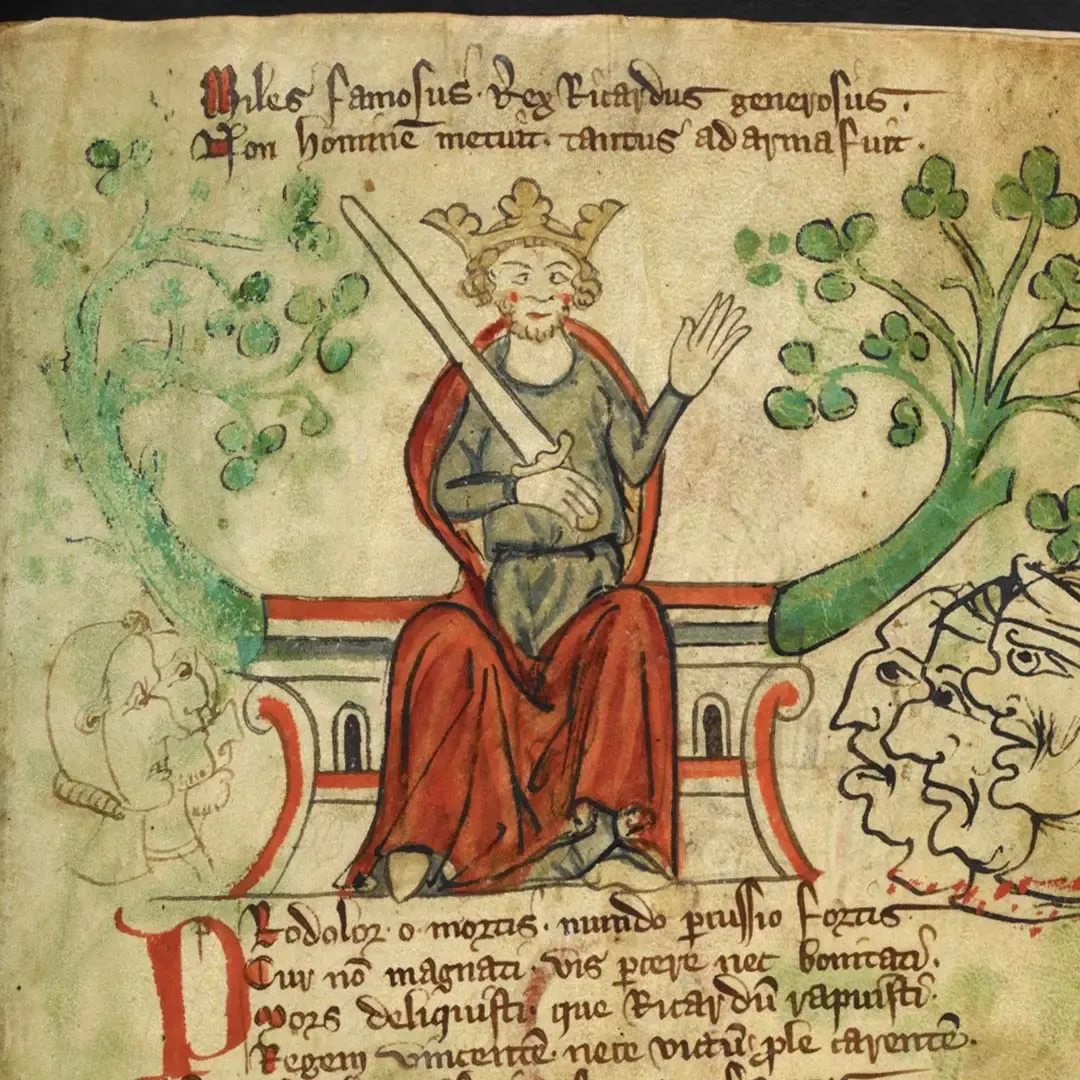 Miles famosus. Rex Ricardus generosus.
Non hominē metuit. tantus ad arma fuit.
PRo dolor. o mortis. mundo pcussio fortis
Cur nō magnati. vis pcere nec bonitati.
Mors deliquisti. que Ricardū rapuisti.
Regem vincentē. nece victū ple carentē.